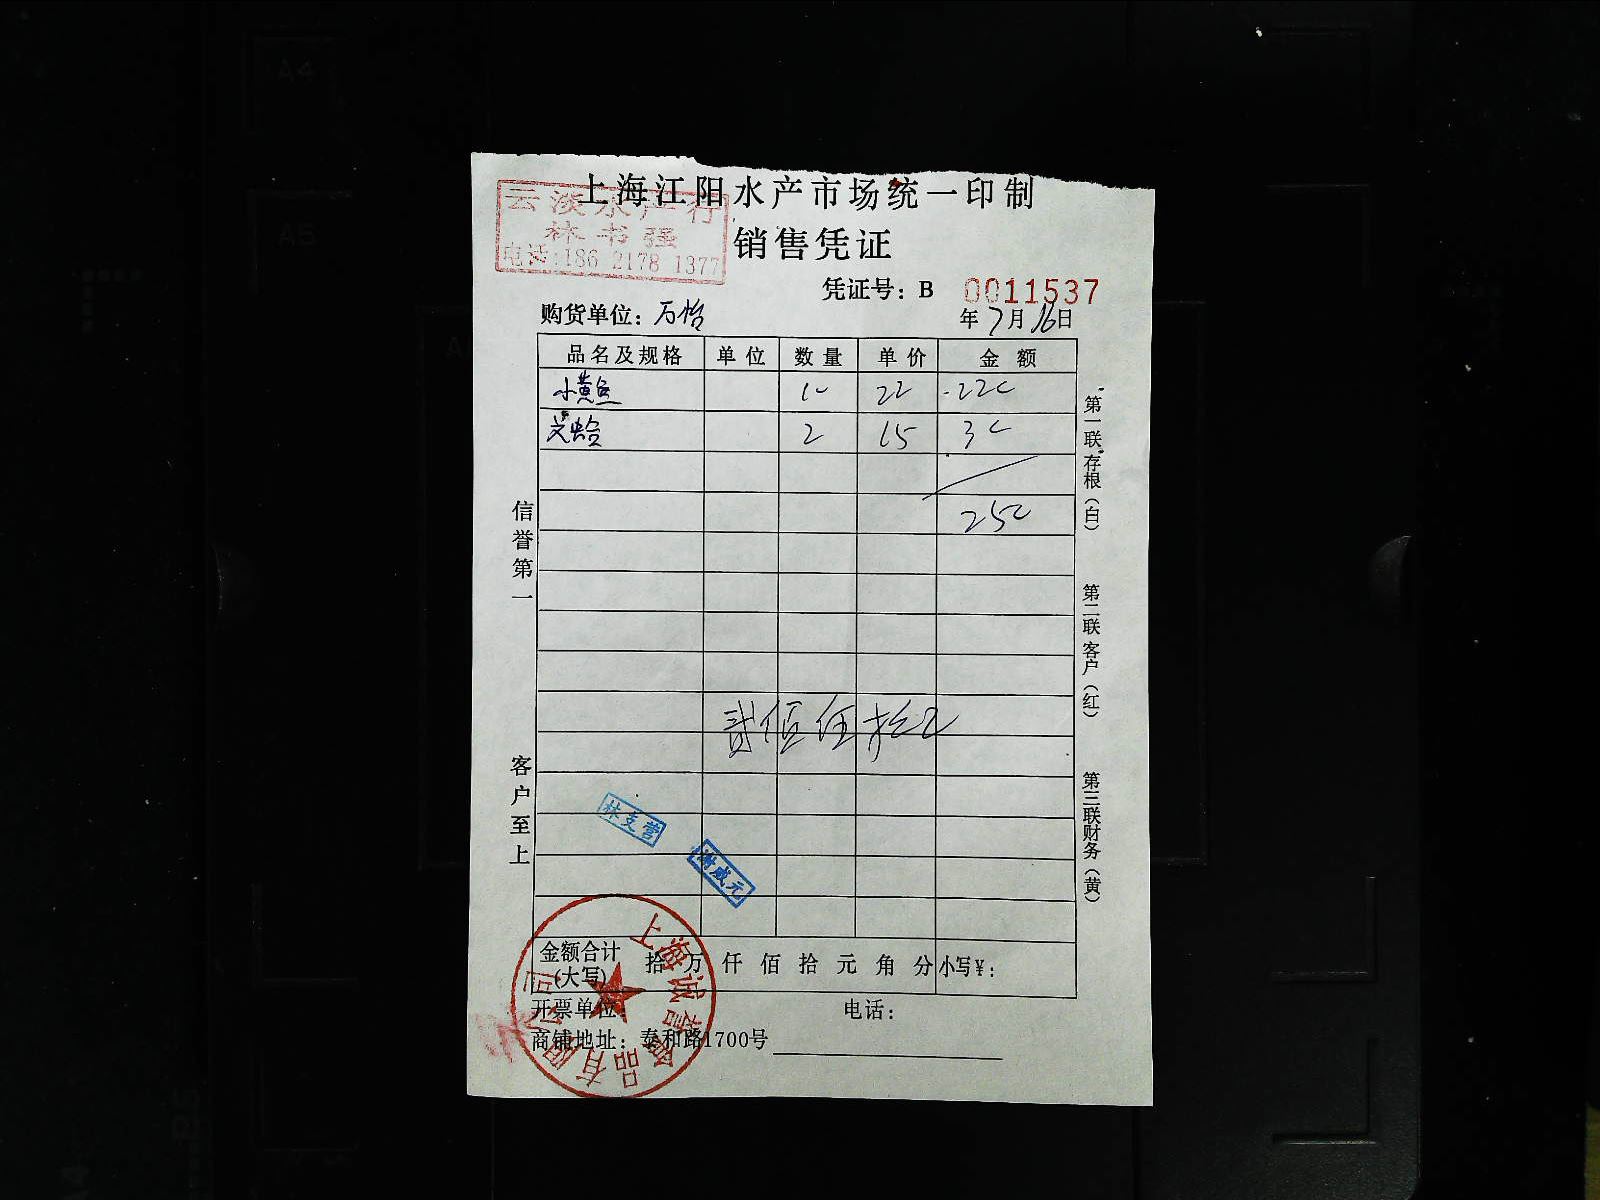 上海江阳水产市场统一印制
云淡水产行
林书强
电话:186 2178 1377
销售凭证
凭证号：B 0011537
购货单位：万怡
年7月16日
品名及规格 单位 数量 单价 金额
小黄鱼 10 22 220
文蛤 2 15 30
250
贰佰伍拾元
信誉第一
客户至上
第一联存根（白）
第二联客户（红）
第三联财务（黄）
林支营
谢成元
金额合计(大写) 拾 万 仟 佰 拾 元 角 分 小写¥：
开票单位： 电话：
商铺地址：泰和路1700号
上海诚 食品有限公司